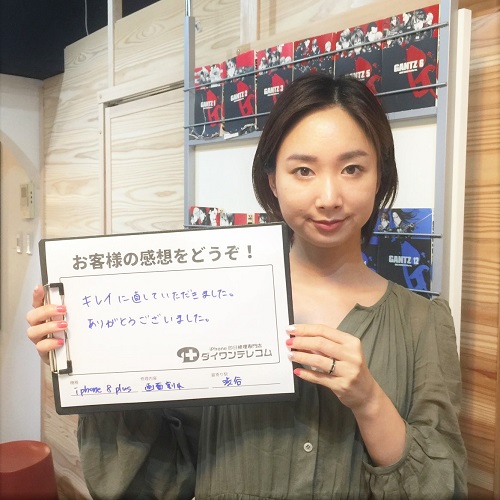 GANTZ 1
GANTZ
GANTZ 3
GANTZ
GANTZ 5
GANTZ 6
GANTZ 12
お客様の感想をどうぞ！
キレイに直していただきました。
ありがとうございました。
iPhone 即日修理専門店
ダイワンテレコム
機種 修理内容 最寄り駅
iphone 8 plus 画面割れ 渋谷